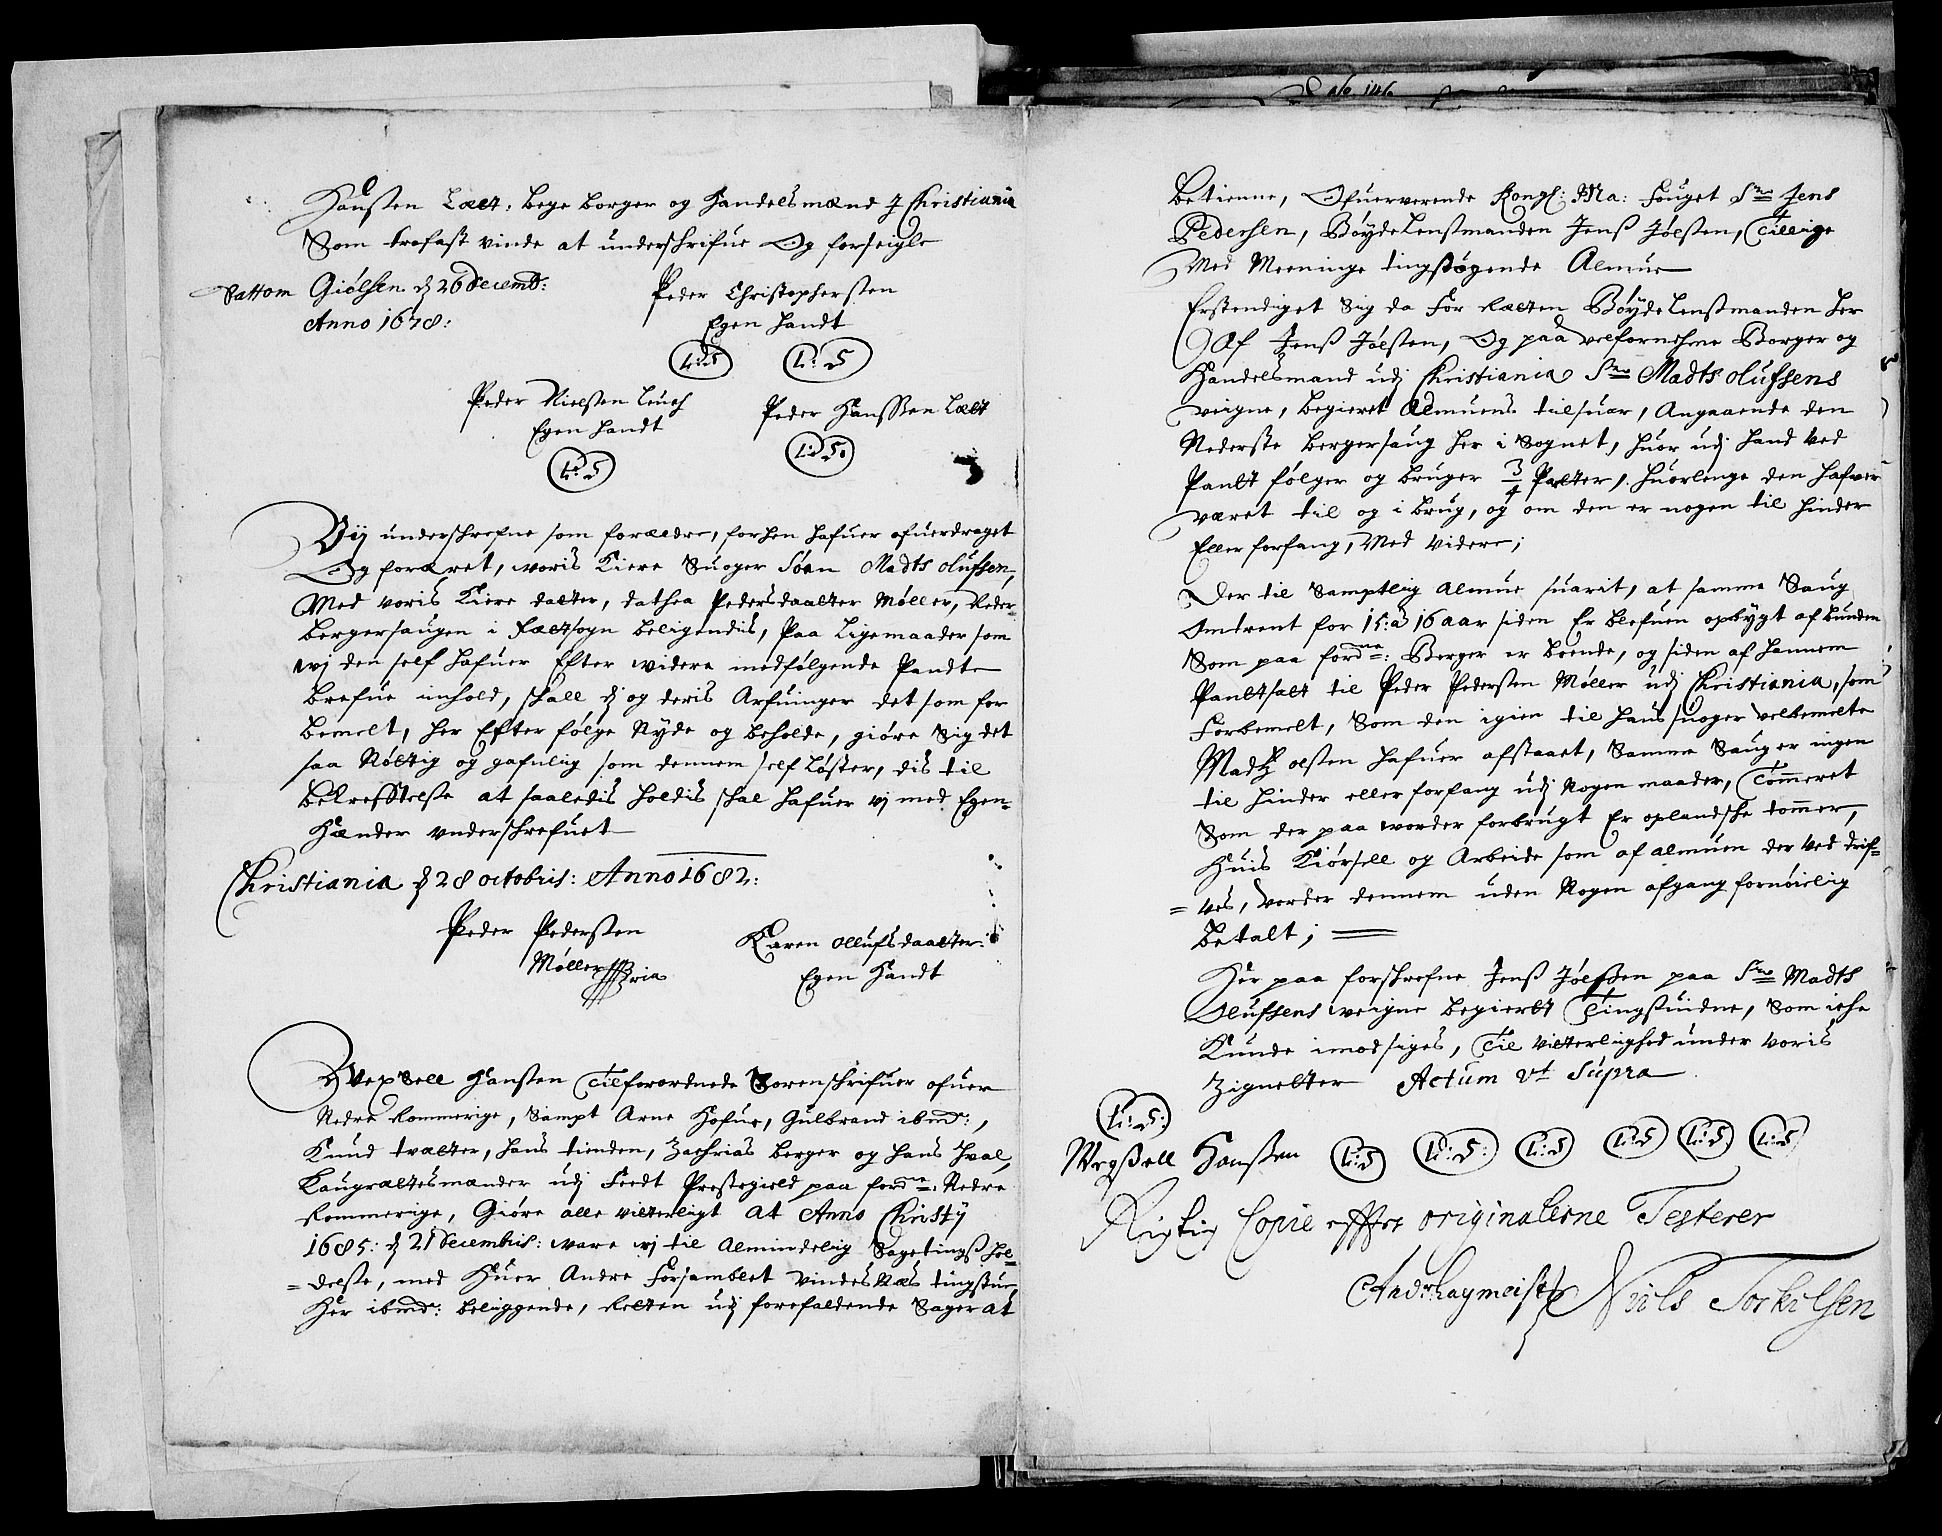 Hanssen Lælt, bege borger og Handelsmænd J Christiania
Som trofast vinde at underschrifue Og forseigle
Sattom Giølsen dj 26 decemb:
Anno 1678:
Peder Christophersen
Egen handt
L: S
L: S
Peder Nielssen Leuch
Egen handt
Peder Hanssen Lælt
L: S
L: S.
Vij underschrefne som forældre, forhen hafuer ofuerdraget
Og foræret, woris Kiere Suoger Søen Madts olufsen,
Med voris Kiere datter, dathea Pedersdaatter Møller, Neder-
bergersaugen i Fættsogn beligendis, paa Ligemaader som
wj den self hafuer Efter widere medfølgende Pandte
brefue inhold, schall dj og deris Arfuinger det som for
bemelt, her Efter følge Nyde og beholde, giøre Sig det
saa Nøttig og gafnlig som dennem self Løster, dis til
bekrefftelse at saaledis holdis schal hafuer wj med Egen-
Hænder vnderschrefuet
Christiania dj 28 octobris: Anno 1682:
Peder Pederssen
Møller
Karen ollufsdaatter:
Egen Handt
Wexsell Hanssen Tilforordnede Sorenschrifuer ofuer
Nedre Rommerige, Sampt Arne Hofue, Gulbrand ibmd:,
Knud tvætter, hans tienden, Zachrias berger og hans Hval,
Laugrættesmænder udj Feedt Prestegield paa fordne: Nedre
Rommerige, Giøre alle vitterligt at Anno Christy
1685: dj 21 decembris: ware wj til Almindelig Sagetingss hol-
=delse, med Huer Andre Forsamblet vindes Næs tingstue
Her ibmd: beliggende, Retten udj forefaldende Sager at
betienne, Ofuerverende Kongl: Ma: Fouget Sr Jens
Pedersen, Bøydelenssmanden Jenss Jølssen, Tillige
Med Meeninge tingsøgende Almue
Erstendiget Sig da For Rætten Bøydelenssmanden her
Af Jenss Jølssen, Og paa velfornehme Borger og
Handelsmand udj Christiania Sr Madts olufsens
veigne, begieret Almuens tilsuar, Angaaende den
Nederste bergersaug her i Sognet, huor udj hand ved
Pandt følger og bruger 3/4 Parter, huorlenge den hafuer
været til og i brug, og om den er nogen til hinder
Eller forfang, Med videre;
Der til Samptlig Almue suarit, at samme Saug
Omtrent for 15: a 16 aar siden Er blefuen opbygt af bunden
Som paa fordne: Berger er boende, og siden af hannem
Pandtsatt til Peder Pederssen Møller udj Christiania, som
Forbemelt, Som den igien til hans suoger velbemelte
Madtz olssen hafuer afstaaet, Samme Saug er ingen
til hinder eller forfang udj Nogen maader, Tømmeret
Som der paa worder forbrugt Er oplandsche tømmer,
Huis Kiørsell og Arbeide som af almuen der ved drif-
=ves, vorder dennem uden Nogen afgang fornøielig
betalt;
Her paa forschrefne Jenss Jølssen paa Sr Madts
Olufsens weigne begierdt Tingsuidne, Som iche
Kunde imodsiges, Til vitterlighed under voris
Zignetter Actum vt Supra
L: S:
Wexsell Hanssen L: S L: S: L: S L: S L: S L: S
Rigtig Copie effter originalerne Testerer
Andr hagmeister Niels Torkilsen